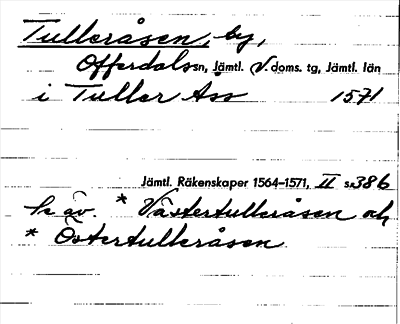 Tulleråsen, by,
Offerdals sn, Jämtl. V. doms. tg, Jämtl. län
i Tuller Åss 1571
Jämtl. Räkenskaper 1564–1571, II s. 386
Se äv. * Västertulleråsen och
* Östertulleråsen.